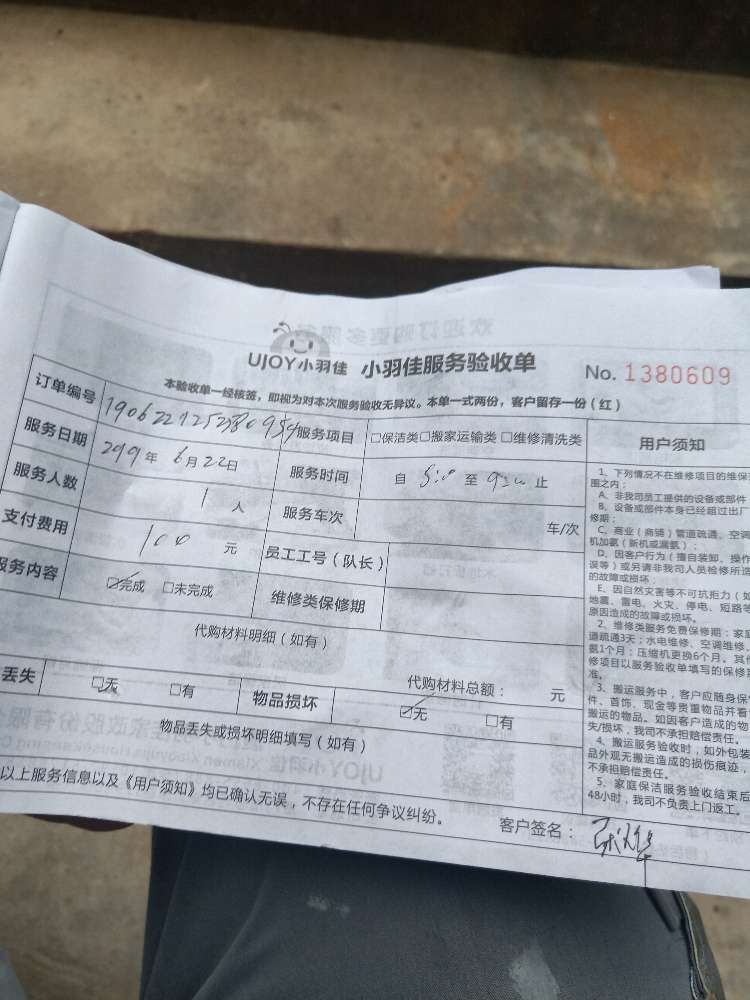 UJOY小羽佳 小羽佳服务验收单 No. 1380609
本验收单一经核签，即视为对本次服务验收无异议。本单一式两份，客户留存一份（红）
订单编号 服务项目 □保洁类□搬家运输类□维修清洗类 用户须知
服务日期 年 6月22日 服务时间 自 至 止
服务人数 1 人 服务车次 车/次
支付费用 100 元 员工工号（队长）
服务内容 ☑完成 □未完成 维修类保修期
代购材料明细（如有）
代购材料总额： 元
丢失 ☑无 □有 物品损坏 ☑无 □有
物品丢失或损坏明细填写（如有）
以上服务信息以及《用户须知》均已确认无误，不存在任何争议纠纷。
客户签名：
1、下列情况不在维修项目的维保
围之内：
A、非我司员工提供的设备或部件
B、设备或部件本身已经超过出厂
修期；
C、商业（商铺）管道疏通、空调
机加氨（新机或漏氨）；
D、因客户行为（擅自装卸、操作
误等）或另请非我司人员检修所造
的故障或损坏；
E、因自然灾害等不可抗拒力（如
地震、雷电、火灾、停电、短路等
原因造成的故障或损坏。
2、维修类服务免费保修期：家庭
道疏通3天；水电维修、空调维修、
氨1个月；压缩机更换6个月。其
修项目以服务验收单填写的保修
准。
3、搬运服务中，客户应随身保
件、首饰、现金等贵重物品并看
搬运的物品。如因客户造成的物
失/损坏，我司不承担赔偿责任。
4、搬运服务验收时，如外包装
品外观无搬运造成的损伤痕迹，
不承担赔偿责任。
5、家庭保洁服务验收结束后
48小时，我司不负责上门返工。